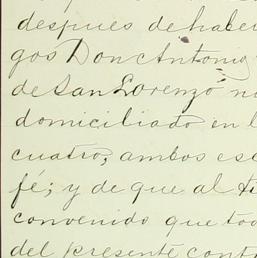 despues de haber
gos Don Antonio
de San Lorenzo
domiciliado en l
cuatro, ambos ese
fé; y de que al ti
convenido que tod
del presente cont